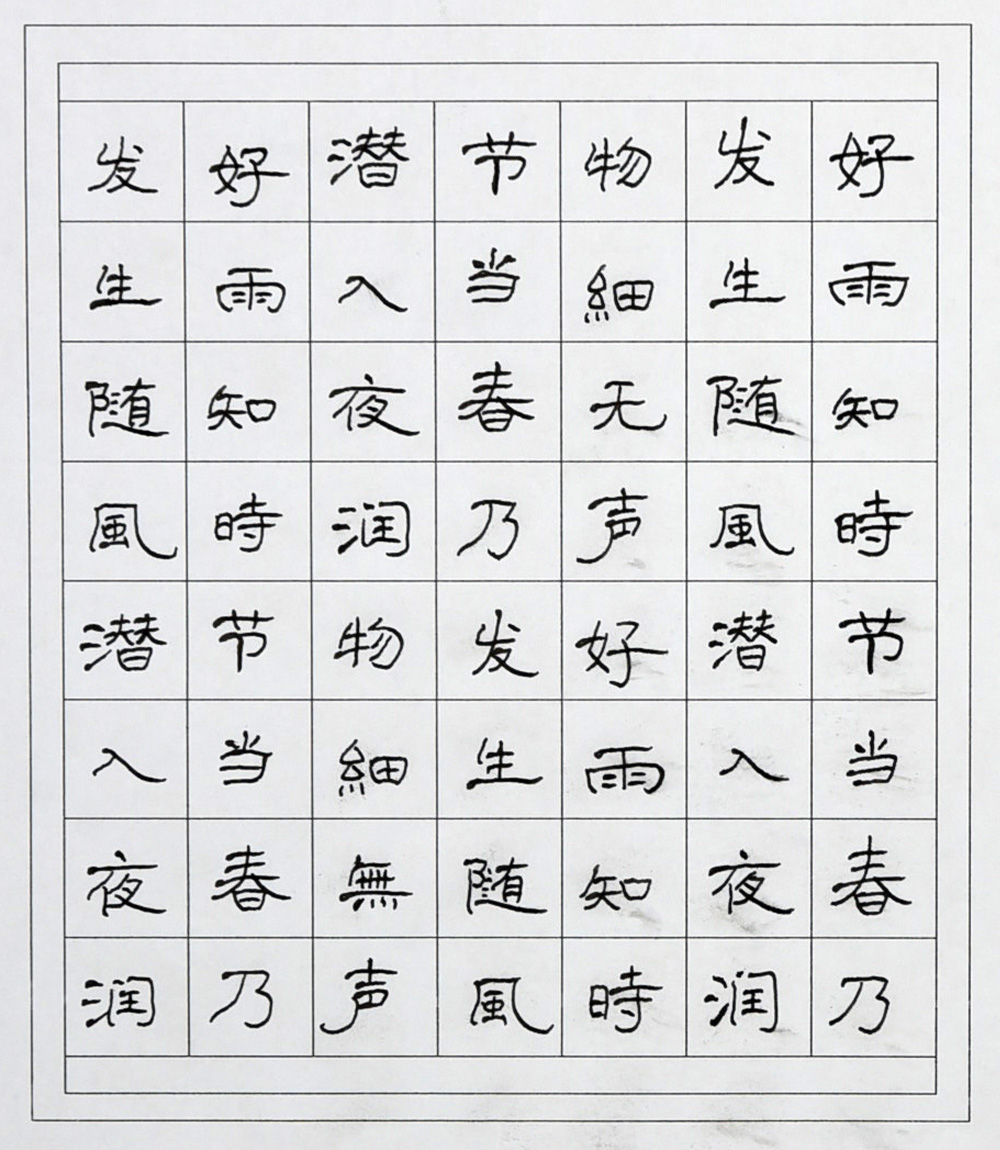 好雨知時节当春乃
发生随風潜入夜润
物细无声好雨知時
节当春乃发生随風
潜入夜润物細無声
好雨知時节当春乃
发生随風潜入夜润